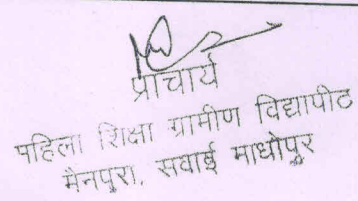 प्राचार्य
पहिला शिक्षा ग्रामीण विद्यापीठ
मैनपुरा, सवाई माधोपुर